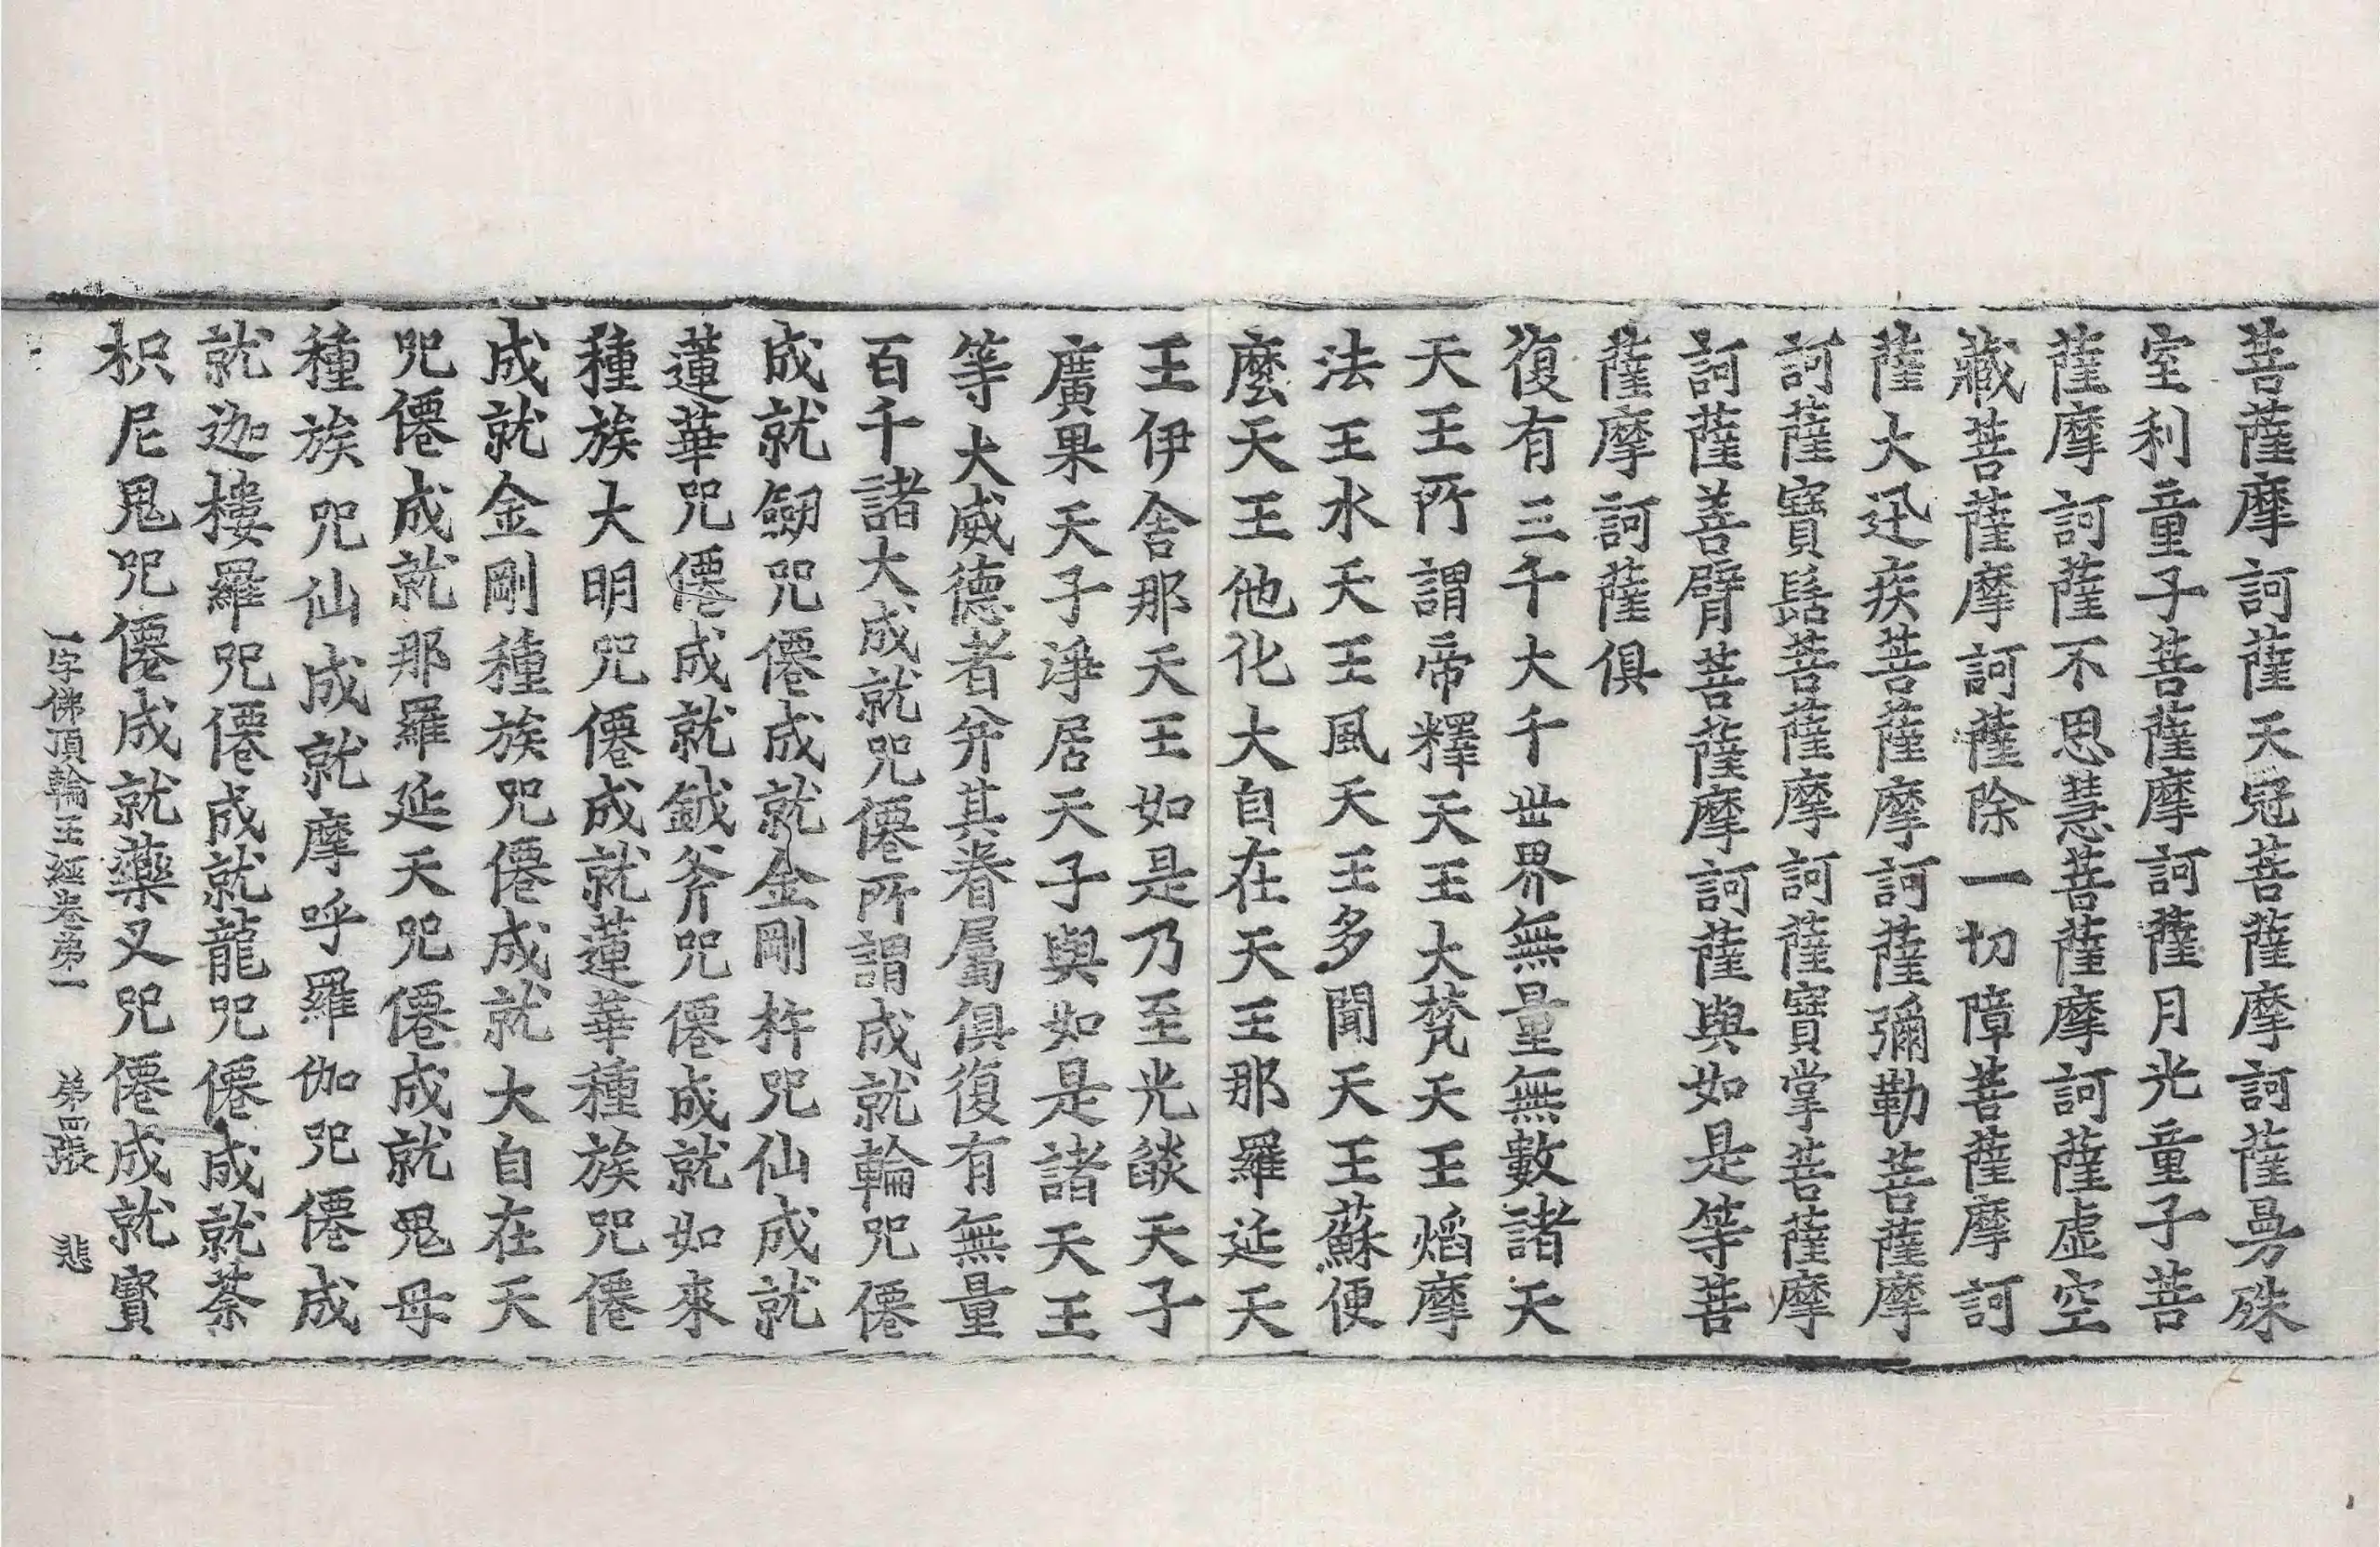 菩薩摩訶薩天冠菩薩摩訶薩曼殊
室利童子菩薩摩訶薩月光童子菩
薩摩訶薩不思慧菩薩摩訶薩虛空
藏菩薩摩訶薩除一切障菩薩摩訶
薩大迅疾菩薩摩訶薩彌勒菩薩摩
訶薩寶髻菩薩摩訶薩寶掌菩薩摩
訶薩善臂菩薩摩訶薩與如是等菩
薩摩訶薩俱
復有三千大千世界無量無數諸天
天王所謂帝釋天王大梵天王焰摩
法王水天王風天王多聞天王蘇便
麼天王他化大自在天王那羅延天
王伊舍那天王如是乃至光燄天子
廣果天子淨居天子與如是諸天王
等大威德者并其眷屬俱復有無量
百千諸大成就咒僊所謂成就輪咒僊
成就劒咒僊成就金剛杵咒仙成就
蓮華咒僊成就鉞斧咒僊成就如來
種族大明咒僊成就蓮華種族咒僊
成就金剛種族咒僊成就大自在天
咒僊成就那羅延天咒僊成就鬼母
種族咒仙成就摩呼羅伽咒僊成
就迦樓羅咒僊成就龍咒僊成就荼
枳尼鬼咒僊成就藥叉咒僊成就寶
一字佛頂輪王經卷第一 第四張 悲